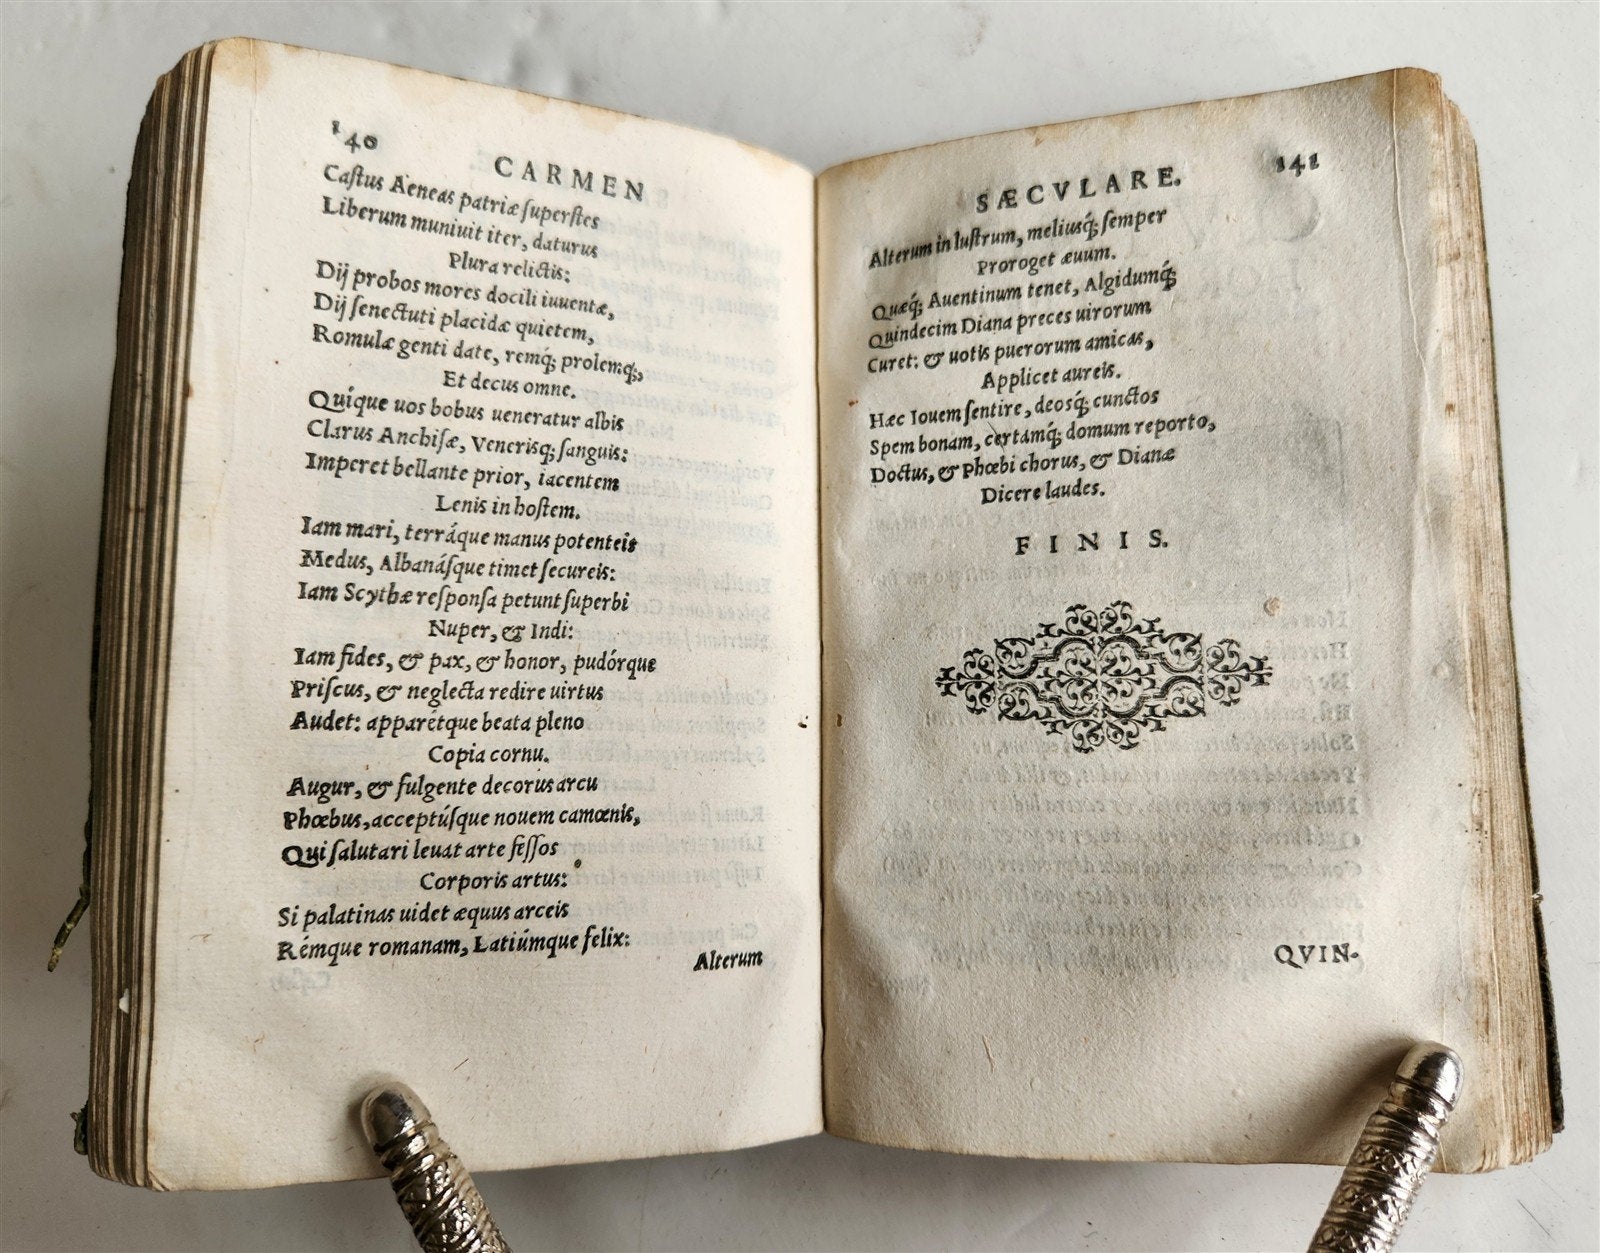 140
CARMEN
Caſtus Aeneas patriæ ſuperſtes
Liberum muniuit iter, daturus
Plura relictis:
Dij probos mores docili iuuentæ,
Dij ſenectuti placidæ quietem,
Romulæ genti date, remq́; prolemq́;,
Et decus omne.
Quique uos bobus ueneratur albis
Clarus Anchiſæ, Venerisq; ſanguis:
Imperet bellante prior, iacentem
Lenis in hoſtem.
Iam mari, terráque manus potenteis
Medus, Albanáſque timet ſecureis:
Iam Scythæ reſponſa petunt ſuperbi
Nuper, & Indi:
Iam fides, & pax, & honor, pudórque
Priſcus, & neglecta redire uirtus
Audet: apparétque beata pleno
Copia cornu.
Augur, & fulgente decorus arcu
Phœbus, acceptúſque nouem camœnis,
Qui ſalutari leuat arte feſſos
Corporis artus:
Si palatinas uidet æquus arceis
Rémque romanam, Latiúmque felix:
Alterum
SÆCVLARE.
141
Alterum in luſtrum, meliusq́; ſemper
Proroget æuum.
Quæq́; Auentinum tenet, Algidumq́;
Quindecim Diana preces uirorum
Curet: & uotis puerorum amicas,
Applicet aureis.
Hæc Iouem ſentire, deosq́; cunctos
Spem bonam, certamq́; domum reporto,
Doctus, & Phœbi chorus, & Dianæ
Dicere laudes.
FINIS.
QVIN-